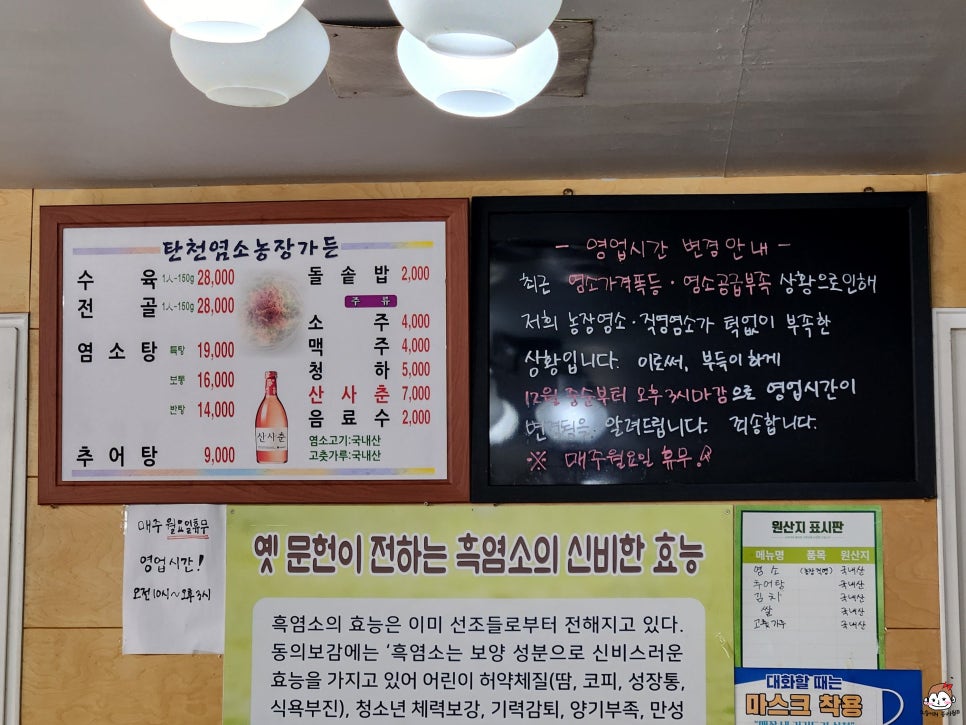 탄천염소농장가든
수 육 1人-150g 28,000
전 골 1人-150g 28,000
염 소 탕 특탕 19,000
보통 16,000
반탕 14,000
추 어 탕 9,000
돌 솥 밥 2,000
주 류
소 주 4,000
맥 주 4,000
청 하 5,000
산 사 춘 7,000
음 료 수 2,000
염소고기:국내산
고춧가루:국내산
산사춘
- 영업시간 변경안내 -
최근 염소가격폭등·염소공급부족 상황으로인해
저희 농장염소·직영염소가 턱없이 부족한
상황입니다. 이로써, 부득이하게
12월 중순부터 오후3시마감으로 영업시간이
변경됨을 알려드립니다. 죄송합니다.
※ 매주월요일 휴무!
매주 월요일휴무
영업시간!
오전10시~오후3시
옛 문헌이 전하는 흑염소의 신비한 효능
흑염소의 효능은 이미 선조들로부터 전해지고 있다.
동의보감에는 '흑염소는 보양 성분으로 신비스러운
효능을 가지고 있어 어린이 허약체질(땀, 코피, 성장통,
식욕부진), 청소년 체력보강, 기력감퇴, 양기부족, 만성
원산지 표시판
메뉴명 품목 원산지
염소 (농장직영) 국내산
추어탕 국내산
김치 국내산
쌀 국내산
고춧가루 국내산
대화할 때는
마스크 착용